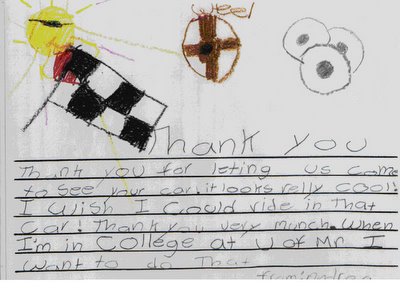 weel
Thank you
Thank you for leting us come
to see your car. it looks relly cool!
I wish I could ride in that
car! Thank you very munch. When
I'm in College at U of Mr. I
want to do that
from: